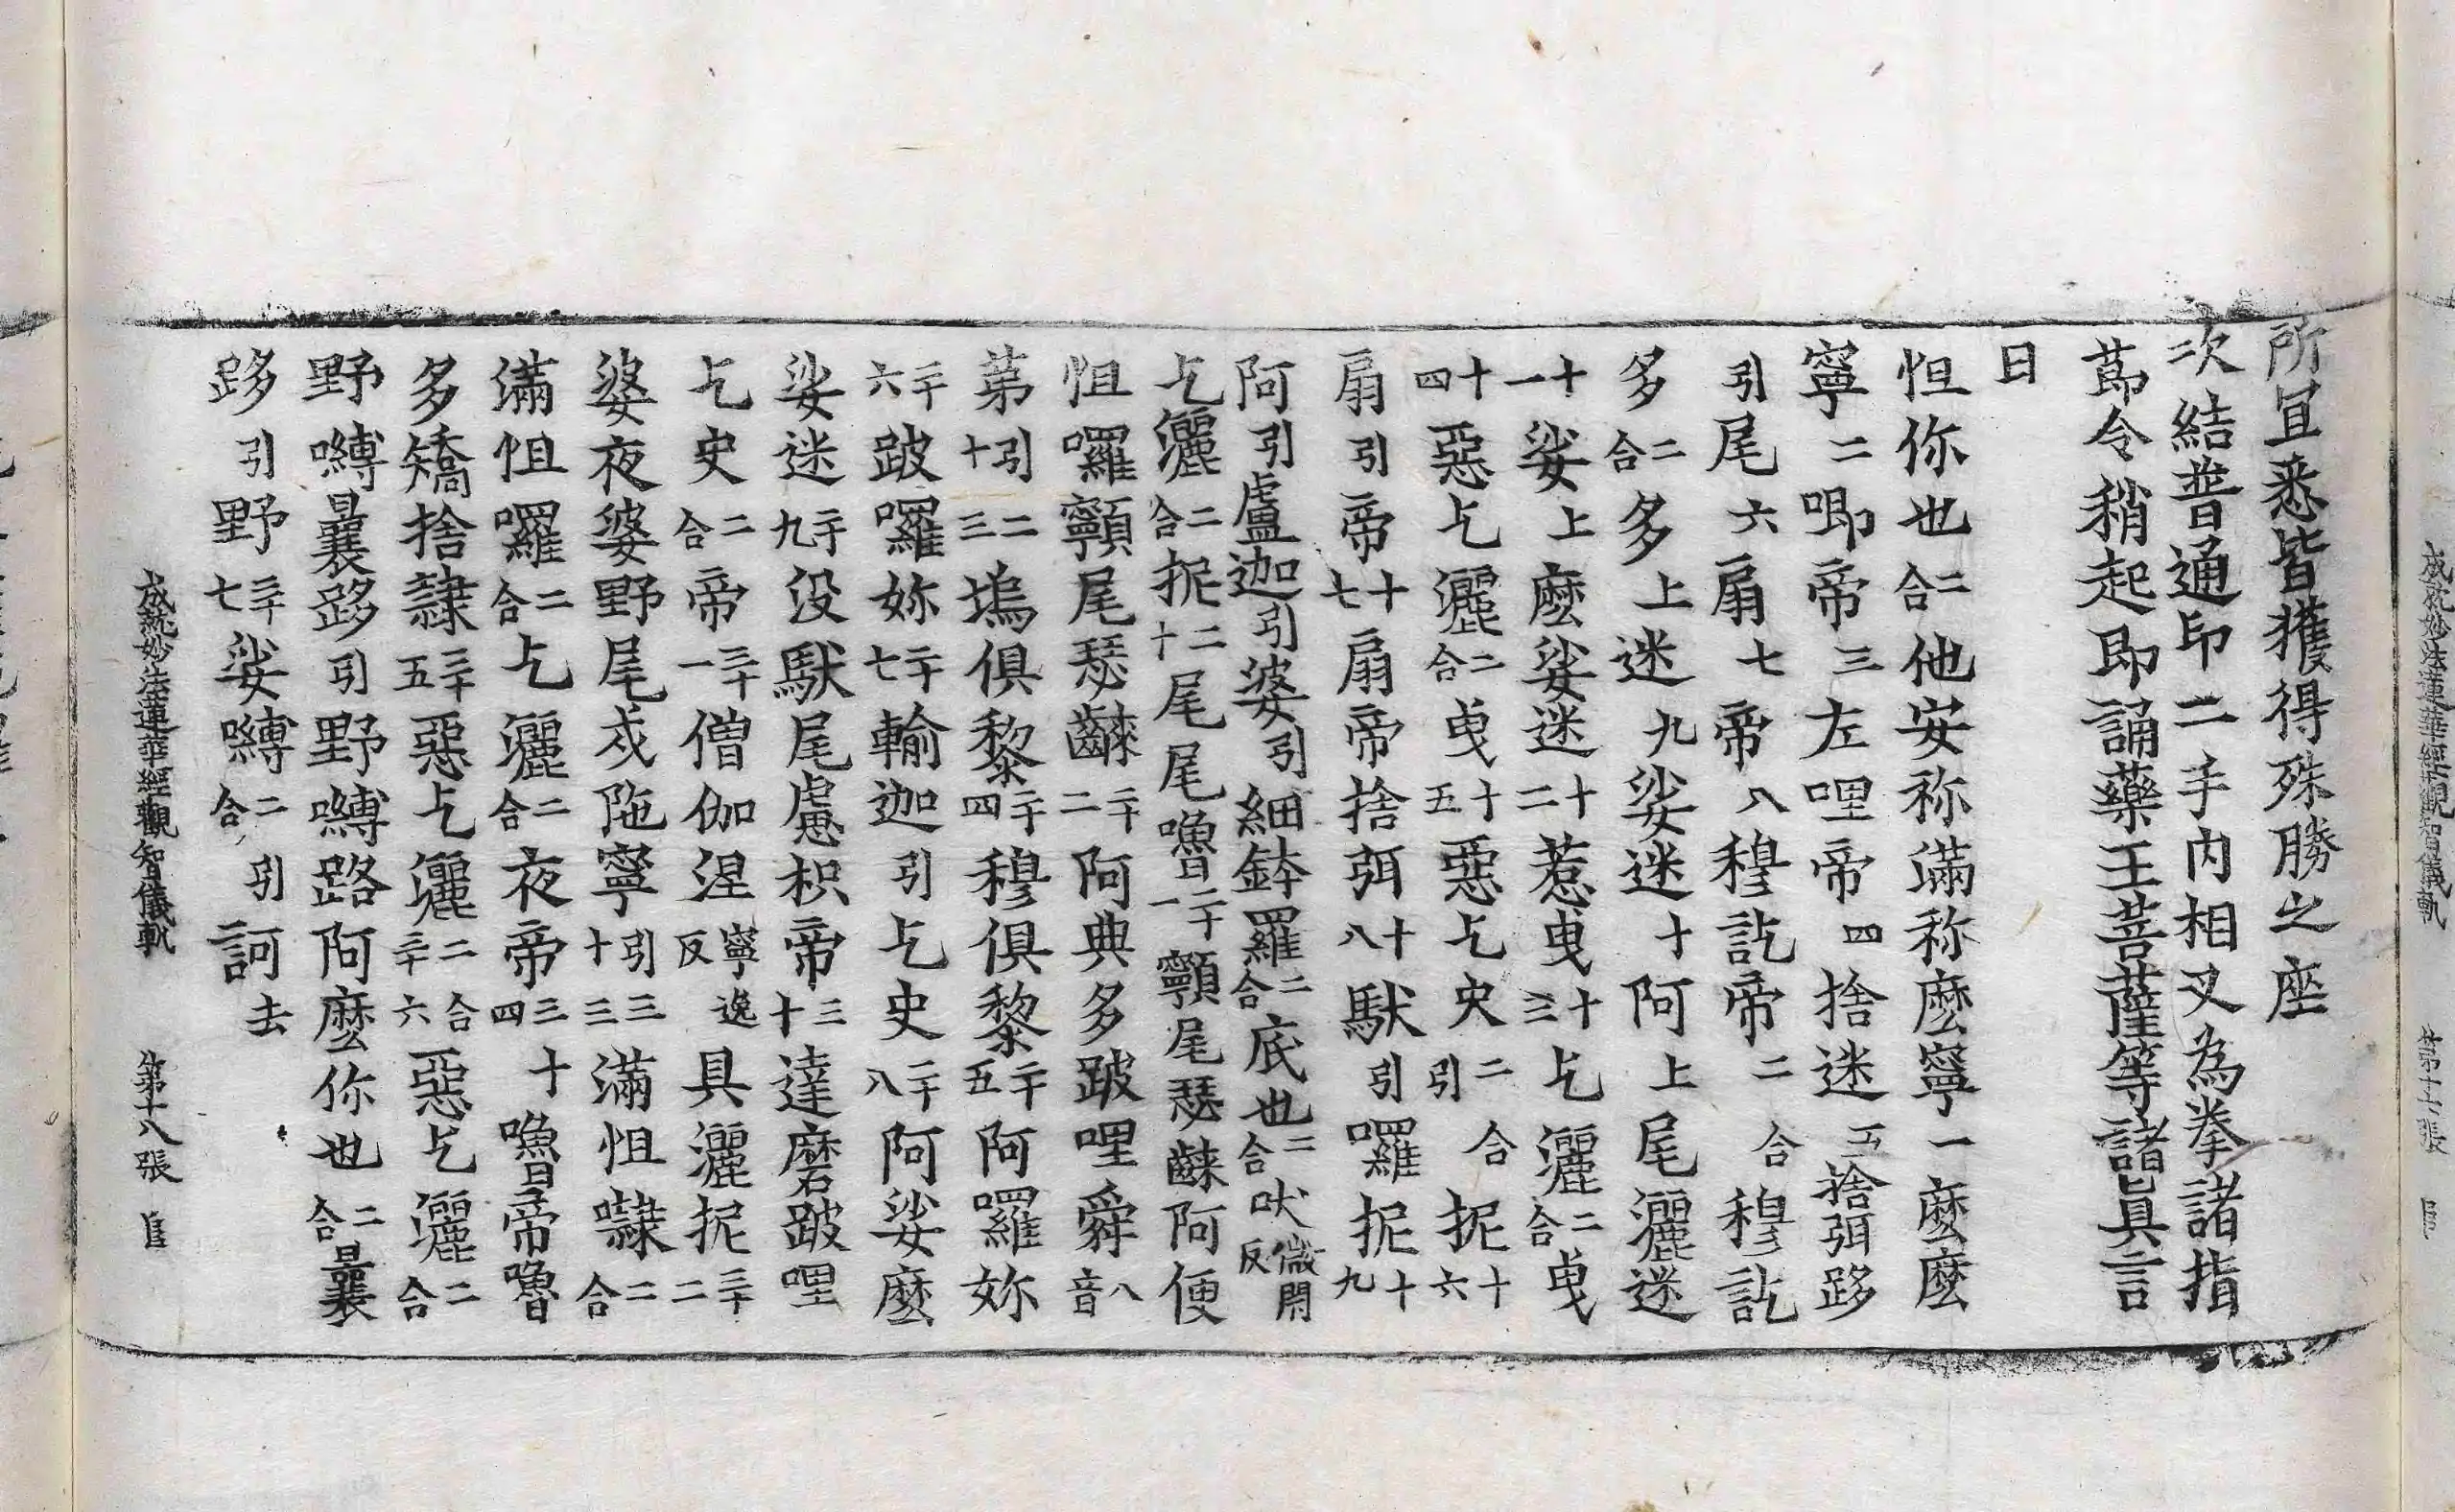 所宜悉皆獲得殊勝之座
次結普通印二手內相叉為拳諸指
莭令稍起即誦藥王菩薩等諸真言
曰
怛你也二合他安祢滿祢麼寧一麼麼
寧二唧帝三左哩帝四捨迷五捨弭跢
引尾六扇七帝八穆訖帝二合穆訖
多二合多上迷九娑迷十阿上尾灑迷
十一娑上麼娑迷十二惹曳十三乞灑二合曳
十四惡乞灑二合曳十五惡乞史二合引抳十六
扇引帝十七扇帝捨弭十八馱引囉抳十九
阿引盧迦引婆引細鉢羅二合底也二合吠微閇反
乞灑二合抳二十尾尾嚕二十一顊尾瑟齼阿便
怛囉顊尾瑟齼二十二阿典多跛哩舜八音
第引十二三塢俱黎二十四穆俱黎二十五阿囉妳
二十六跛囉妳二十七輸迦引乞史二十八阿娑麼
娑迷二十九没馱尾慮枳帝三十達磨跛哩
乞史二合帝三十一僧伽涅寧逸反具灑抳三十二
婆夜婆野尾戍陁寧引三十三滿怛㘑二合
滿怛囉二合乞灑二合夜帝三十四嚕帝嚕
多矯捨隷三十五惡乞灑二合三十六惡乞灑二合
野嚩曩跢引野嚩路阿麼你也二合曩
跢引野三十七娑嚩二合引訶去
成就妙法蓮華經觀智儀軌　第十八張